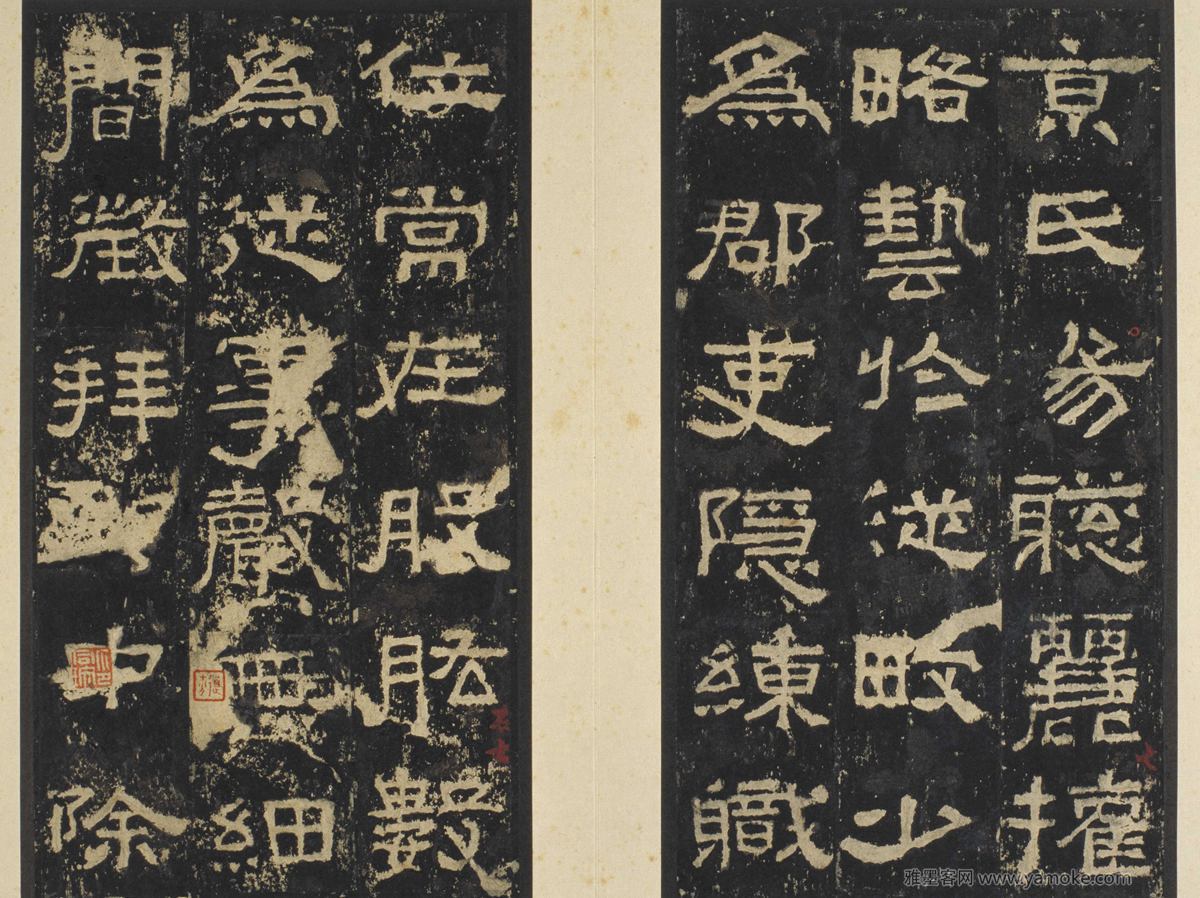 京氏易聰麗權
略藝於從畋少
為郡吏隱練職
位常在股肱數
為從事聲無細
間徵拜中除
雅墨客网 www.yamoke.com